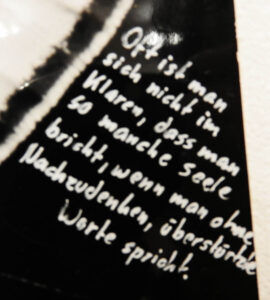 Oft ist man
sich nicht im
Klaren, dass man
so manche Seele
bricht, wenn man ohne
Nachzudenken, überstürzte
Worte spricht.